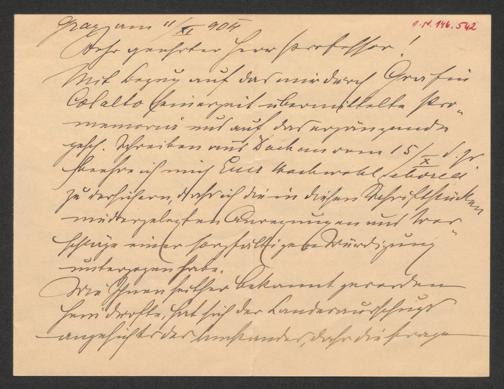 Graz, am 11/XI 904
O.N. 146.542
Sehr geehrter Herr Professor!
Mit Bezug auf das mir durch Grafin
Colalto seinerzeit übermittelte Pro-
memoria und auf das ergänzende
gesch. Schreiben aus vom 15/X d. Js.
beehre ich mich Euer Hochwohlgeboren
zu versichern, daß ich die in diesen Schriftstücken
niedergelegten Anregungen und Vor-
schläge einer sorgfältigen Würdigung
unterzogen habe.
Wie Ihnen seither bekannt geworden
sein dürfte, hat sich der Landesausschuß
angesichts des Umstandes, daß die Frage